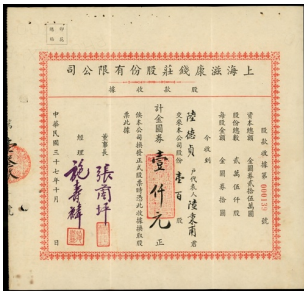 上海滋康錢莊股份有限公司
股款收據
股款收據第000137號
資本總額 金圓券貳拾伍萬圓
股份總數 貳萬伍仟股
每股金額 金圓券拾圓
今收到
陸德貞 戶代表人 陸東甫 君
交來本公司股份 壹百 股
計金圓券壹仟元正
俟本公司換發正式股票時憑此收據換取股
票此據
董事長 張甫坪
經理
中華民國三十七年十月 日